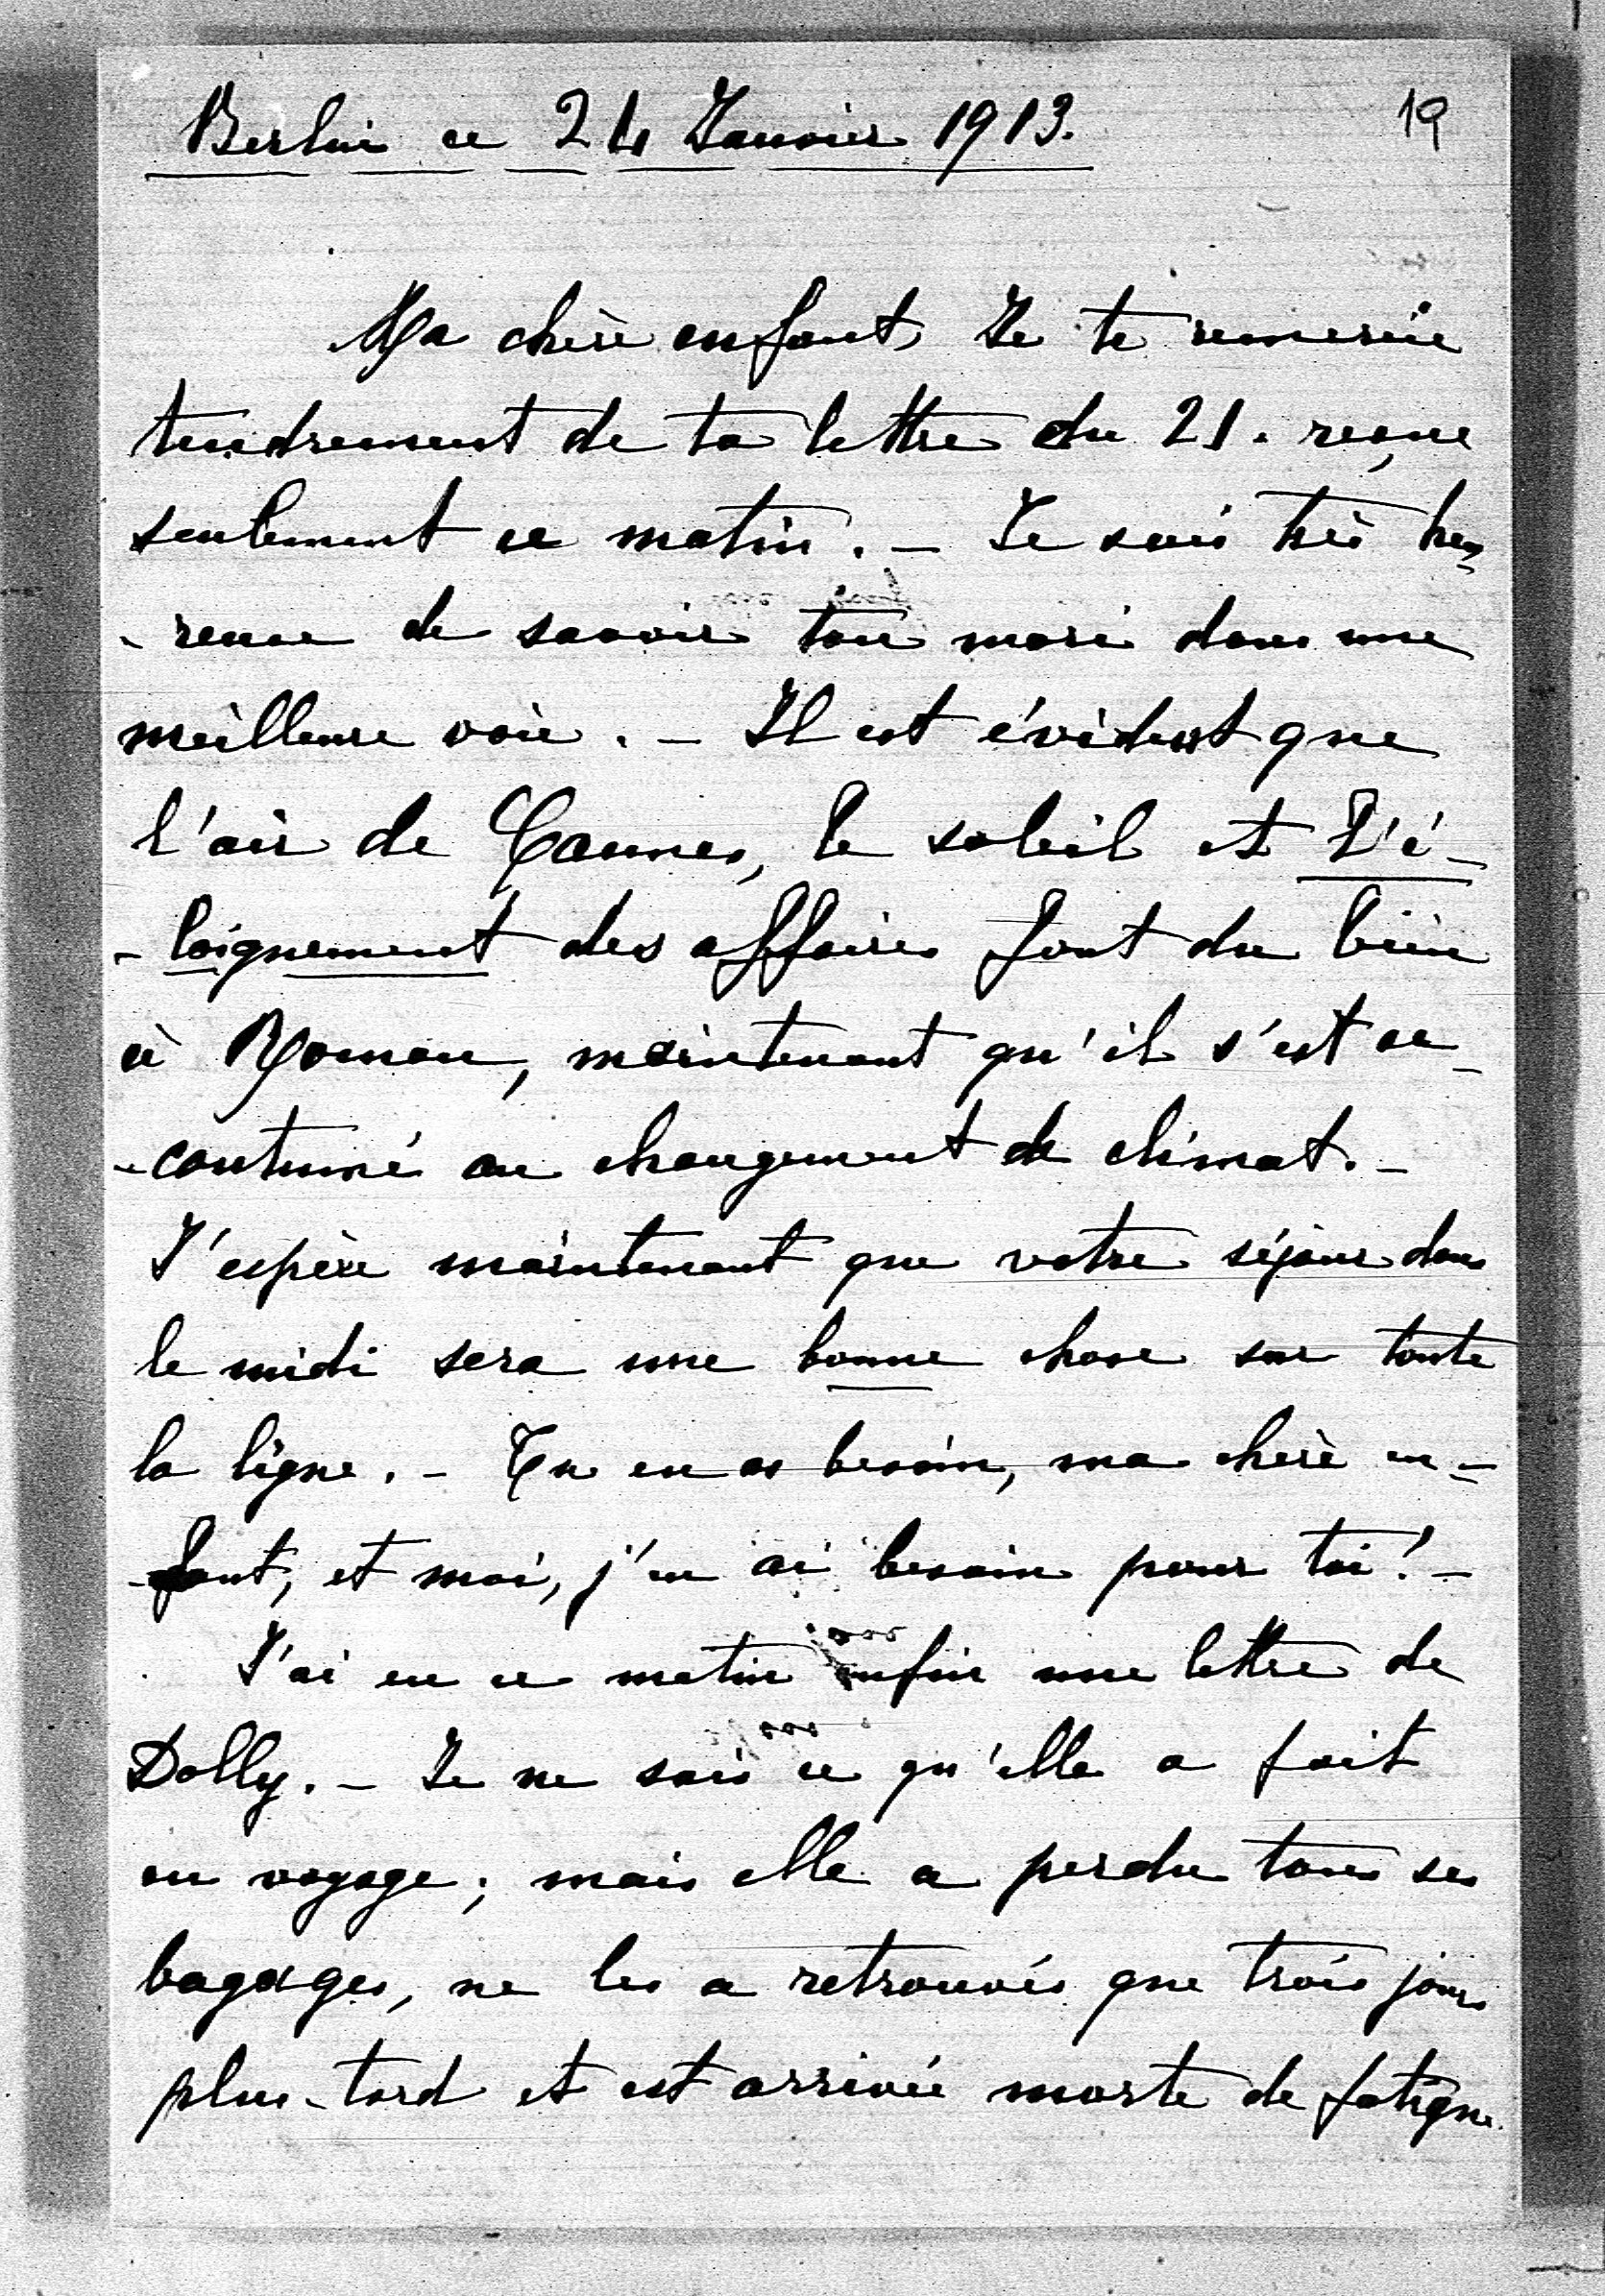 Berlin ce 24 Janvier 1913. 19
Ma chère enfant, Je te remercie
tendrement de ta lettre du 21. reçue
seulement ce matin. – Je suis très heu-
- reuse de savoir ton mari dans une
meilleure voie. – Il est évident que
l'air de Cannes, le soleil et l'é-
- loignement des affaires font du bien
à Roman, maintenant qu'il s'est ac-
- coutumé au changement de climat. –
J'espère maintenant que votre séjour dans
le midi sera une bonne chose sur toute
la ligne. – Tu en as besoin, ma chère en-
- fant, et moi, j'en ai besoin pour toi! –
J'ai eu ce matin enfin une lettre de
Dolly. – Je ne sais ce qu'elle a fait
en voyage; mais elle a perdu tous ses
bagages, ne les a retrouvés que trois jours
plus-tard et est arrivée morte de fatigue.